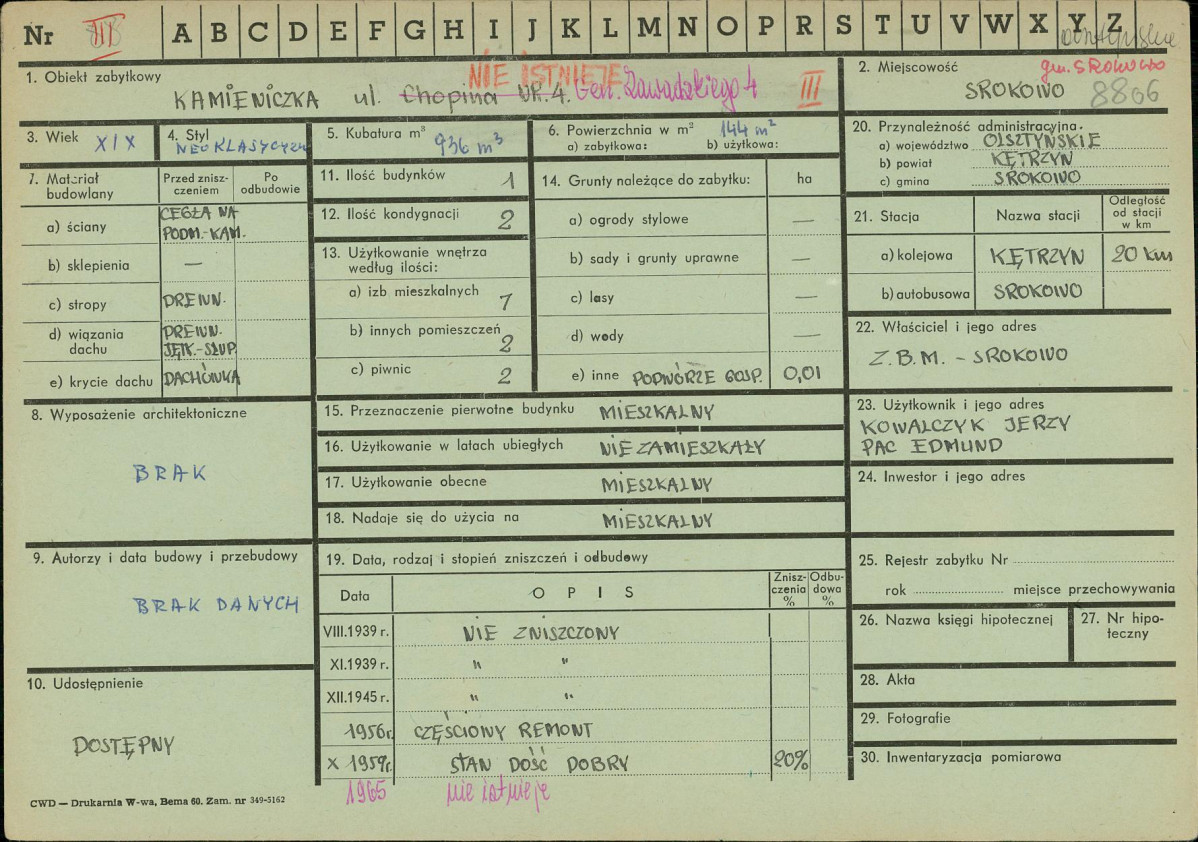 Nr III B A B C D E F G H I J K L M N O P R S T U V W X Y Z
NIE ISTNIEJE
1. Obiekt zabytkowy
KAMIENICZKA ul. Chopina NR. 4. Gen. Zawadzkiego 4 III
2. Miejscowość gm. SROKOWO
SROKOWO 8806
3. Wiek XIX
4. Styl
NEOKLASYCZN
5. Kubatura m³
936 m³
6. Powierzchnia w m² 144 m²
a) zabytkowa: b) użytkowa:
20. Przynależność administracyjna.
a) województwo OLSZTYŃSKIE
b) powiat KĘTRZYN
c) gmina SROKOWO
7. Materiał budowlany
Przed znisz-
czeniem
Po
odbudowie
a) ściany CEGŁA NA
PODM.-KAM.
b) sklepienia —
c) stropy DREWN.
d) wiązania
dachu
DREWN.
JĘTK.-SŁUP.
e) krycie dachu DACHÓWKA
11. Ilość budynków 1
12. Ilość kondygnacji 2
13. Użytkowanie wnętrza
według ilości:
a) izb mieszkalnych 7
b) innych pomieszczeń 2
c) piwnic 2
14. Grunty należące do zabytku: ha
a) ogrody stylowe —
b) sady i grunty uprawne —
c) lasy —
d) wody —
e) inne PODWÓRZE GOSP. 0,01
21. Stacja Nazwa stacji
Odległość
od stacji
w km
a) kolejowa KĘTRZYN 20 km
b) autobusowa SROKOWO
22. Właściciel i jego adres
Z.B.M. - SROKOWO
8. Wyposażenie architektoniczne
BRAK
15. Przeznaczenie pierwotne budynku MIESZKALNY
16. Użytkowanie w latach ubiegłych NIEZAMIESZKAŁY
17. Użytkowanie obecne MIESZKALNY
18. Nadaje się do użycia na MIESZKALNY
23. Użytkownik i jego adres
KOWALCZYK JERZY
PAC EDMUND
24. Inwestor i jego adres
9. Autorzy i data budowy i przebudowy
BRAK DANYCH
19. Data, rodzaj i stopień zniszczeń i odbudowy
Data O P I S
Znisz-
czenia
%
Odbu-
dowa
%
VIII.1939 r. NIE ZNISZCZONY
XI.1939 r. " "
XII.1945 r. " "
1956r. CZĘŚCIOWY REMONT
X 1959r. STAN DOŚĆ DOBRY 20%
1965 nie istnieje
25. Rejestr zabytku Nr
rok miejsce przechowywania
26. Nazwa księgi hipotecznej
27. Nr hipo-
teczny
10. Udostępnienie
DOSTĘPNY
28. Akta
29. Fotografie
30. Inwentaryzacja pomiarowa
CWD — Drukarnia W-wa, Bema 60. Zam. nr 349-5162